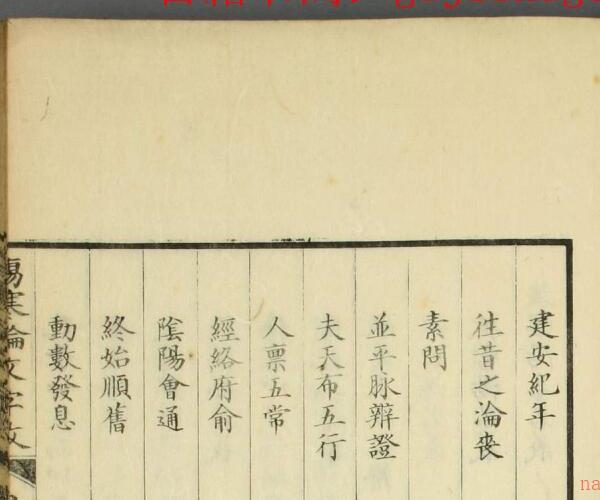 建安紀年
徃昔之淪喪
素問
並平脉辨證
夫天布五行
人禀五常
經絡府俞
陰陽會通
終始順舊
動數發息
傷寒論文字攷